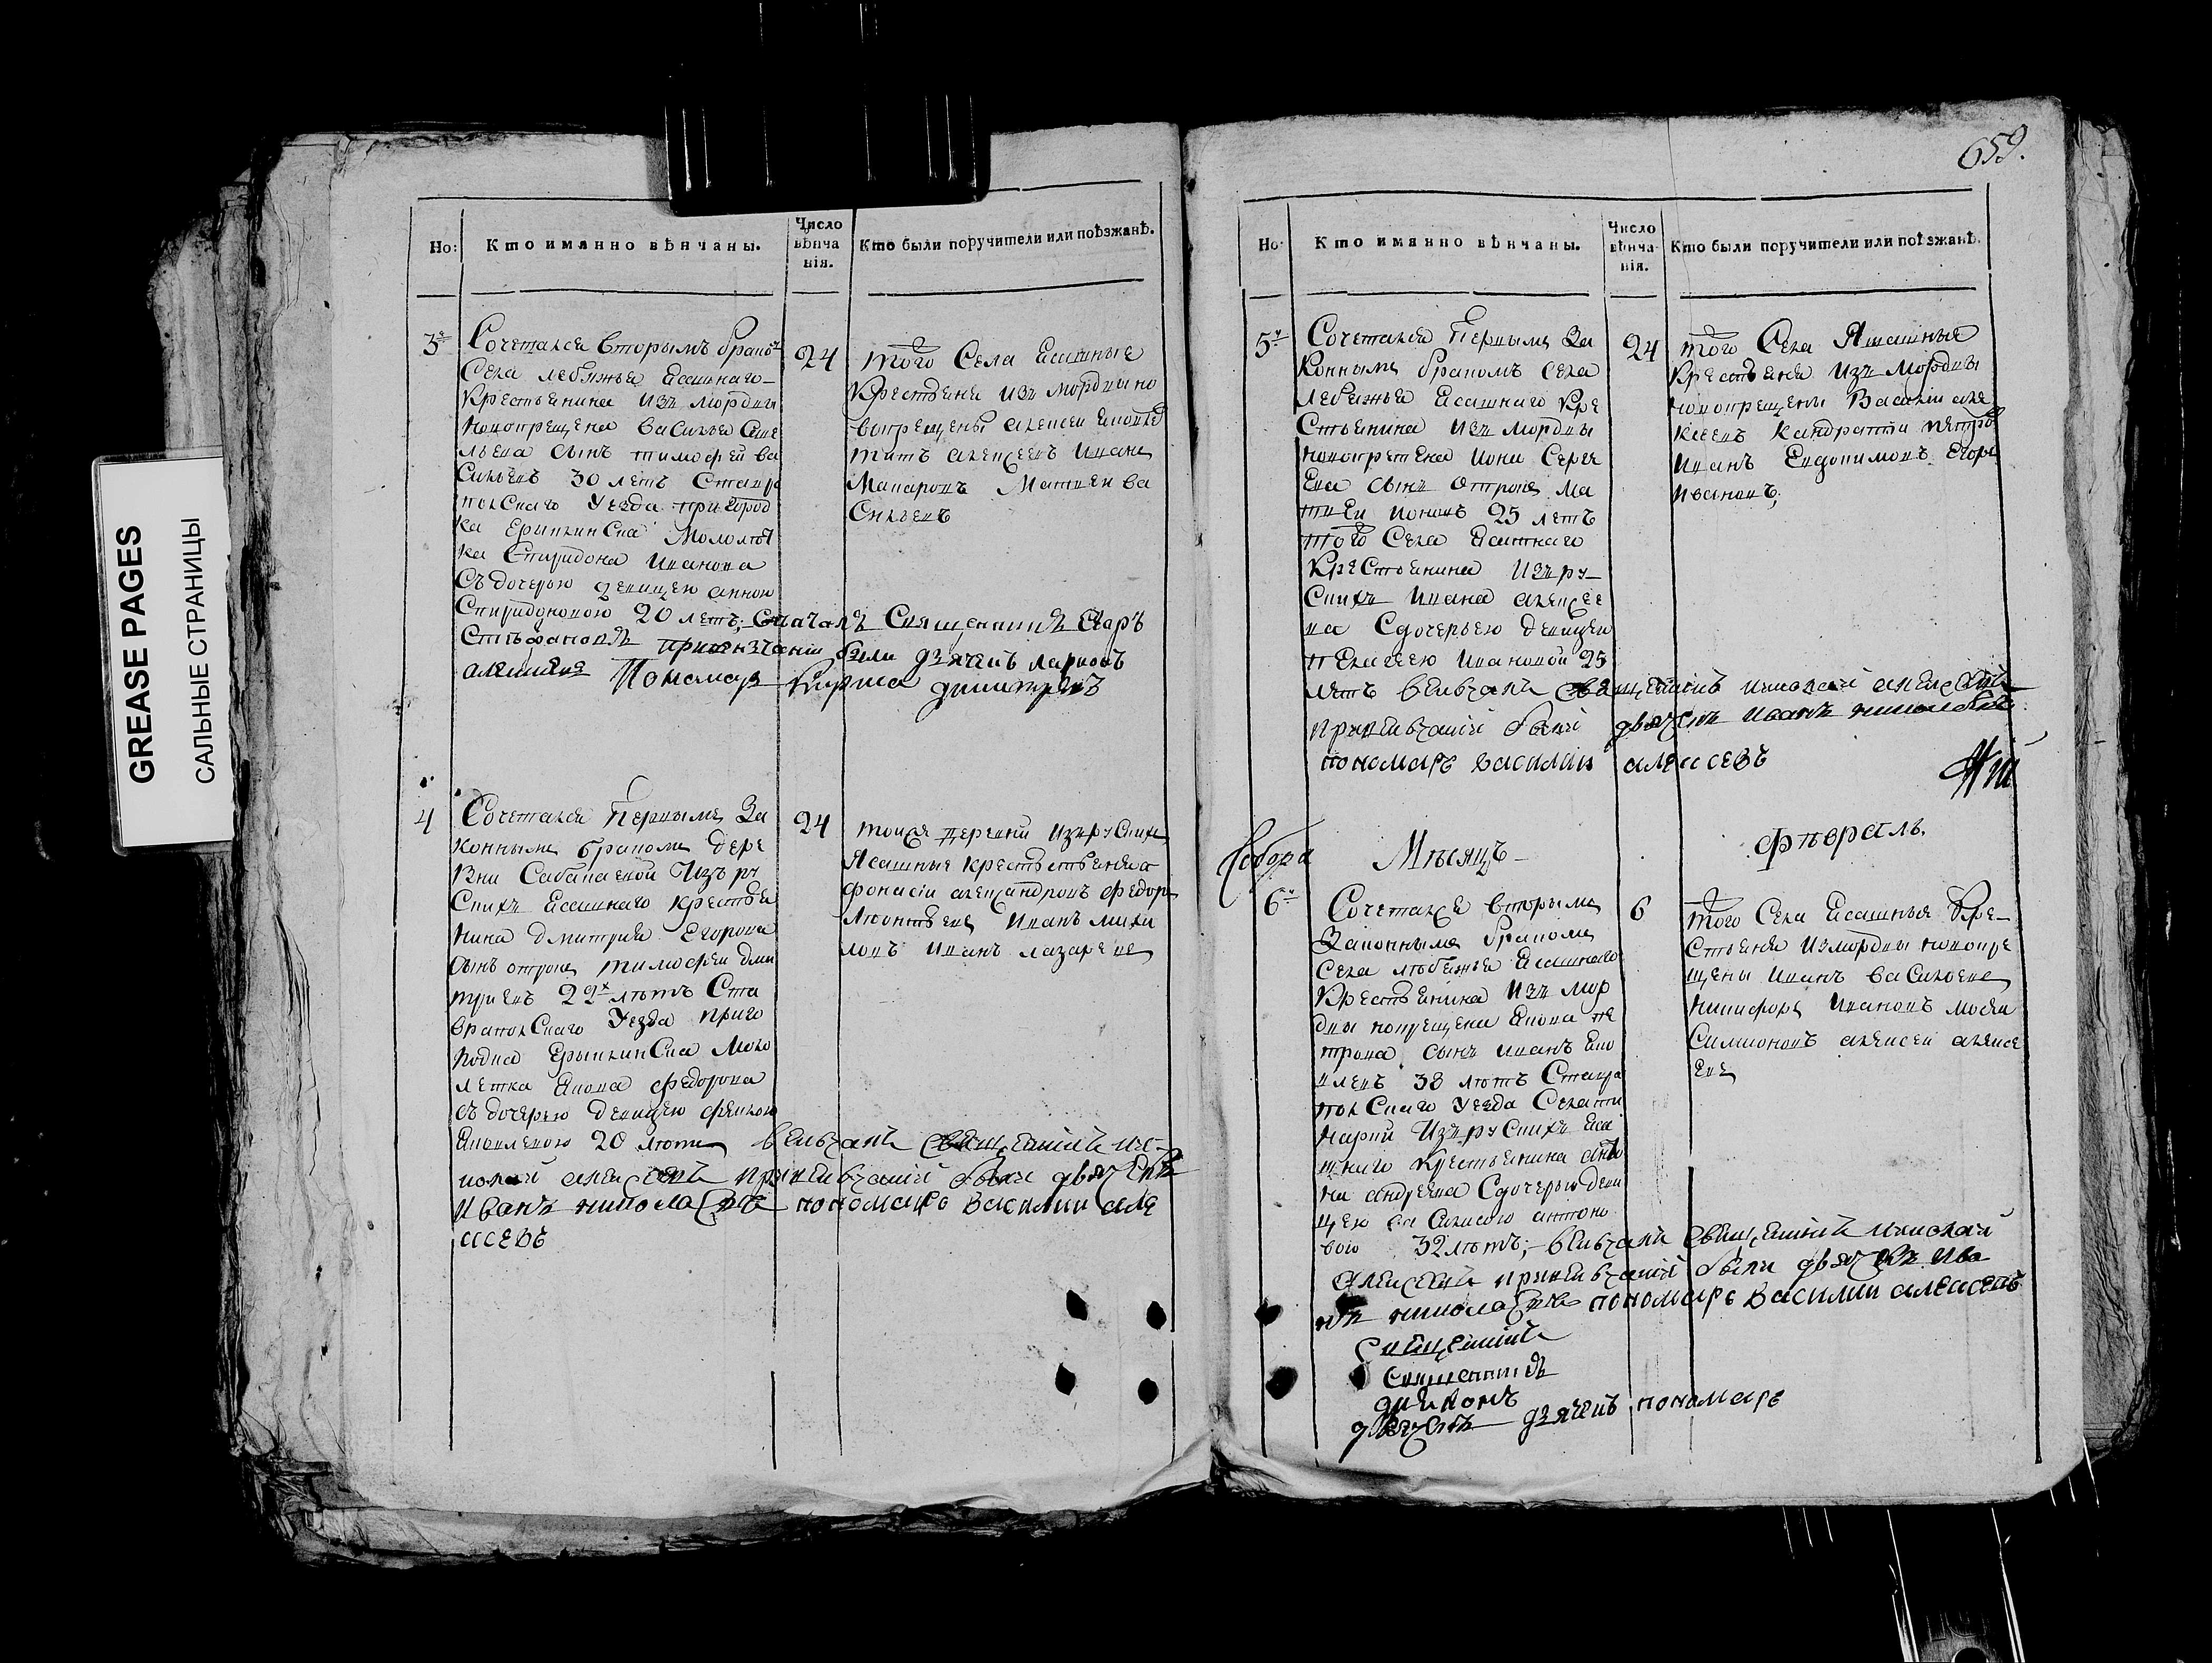 GREASE PAGES
САЛЬНЫЕ СТРАНИЦЫ
Но:
Кто имянно вѣнчаны.
Число вѣнча нія.
Кто были поручители или поѣзжанѣ.
3й
Сочетался вторымъ бракомъ
Села лебяжья Ясашнаго
Крестьянина изъ мордвы
Новокрещена василья
сынъ тимофей ва
сильевъ 30 летъ Ставро
польскаго Уезда пригород
ка Ерыклинска Малолет
ка Спиридона Иванова
Съ дочерью девицею анною
Спиридоновою 20 летъ; Священникъ
Стефановъ были дьячекъ ларионъ
Пономарь димитриевъ
24
того Села Ясашные
Крестьяне изъ мордвы но
вокрещены алексей
титъ алексеевъ Иванъ
Макаровъ Матвеи ва
Сильевъ
4
Сочетался Первымъ За
коннымъ бракомъ дере
вни Сабакаевой Изъ ру
Скихъ Ясашнаго крестья
нина дмитрия Егорова
сынъ отрокъ тимофеи дми
триевъ 22х лѣтъ Ста
вропольскаго Уезда приго
родка Ерыклинска Мало
летка Якова федорова
съ дочерью девицею феклою
Яковлевою 20 лѣтъ венчалъ священникъ ни
колай алексеевъ при венчании были дьячекъ
Иванъ николаевъ пономарь василии але
ксеевъ
24
тойже деревни изъ рускихъ
Ясашные крестьяне а
фонасіи александровъ федоръ
Леонтьевъ Иванъ михаи
ловъ Иванъ лазаревъ
659.
Но:
Кто имянно вѣнчаны.
Число вѣнча нія.
Кто были поручители или поѣзжанѣ.
5й
Сочетался Первымъ За
коннымъ бракомъ села
лебяжья Ясашнаго Кре
стьянина изъ мордвы
новокрещена ионы Серге
ева сынъ отрокъ ма
твеи ионовъ 25 летъ
того Села Ясашнаго
Крестьянина Изъ ру
скихъ Ивана алексее
ва Сдочерью девицею
пелагеею Ивановой 25
летъ венчалъ священникъ николай алексеевъ
при венчании были дьячекъ иванъ николаевъ
пономарь василии алексеевъ
24
того Села Ясашные
Крестьяне Изъ Мордвы
новокрещены Василіи але
ксеевъ Кандратіи петровъ
Иванъ Евдокимовъ Егоръ
Ивановъ;
Мѣсяцъ
Февраль.
6й
Сочетался вторымъ
Законнымъ бракомъ
Села лебяжья Ясашнаго
Крестьянина Изъ мор
двы Якова пе
трова сынъ Иванъ Яко
влевъ 38 лѣтъ Ставро
польскаго Уезда Села
Изъ рускихъ Яса
шнаго Крестьянина анто
на андреева Сдочерью деви
цею василисою антоно
вою 32 лѣтъ; венчалъ священникъ николай
алексеевъ при венчании были дьячекъ ива
нъ николаевъ пономарь василии алексеевъ
6
того Села Ясашныя Кре
стьяня Измордвы новокре
щены Иванъ васильевъ
Никифоръ Ивановъ
Симионовъ алексеи алексе
евъ
Священникъ
Священникъ
диаконъ
дьячекъ дьячекъ пономарь